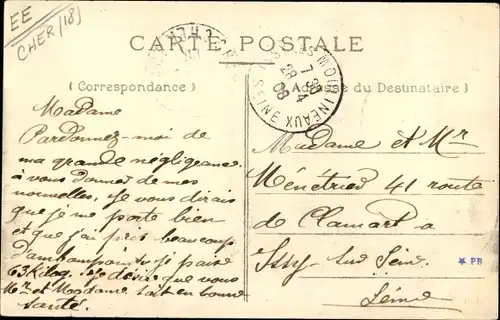 EE
CHER (18)
CARTE POSTALE
( Correspondance )
Adresse du Destinataire )
LES MOULINEAUX SEINE
7 30
28 4
08
Madame
Pardonnez-moi de
ma grande négligeance
à vous donner de mes
nouvelles. Je vous dirais
que je me porte bien
et que j'ai pris beaucoup
d'embonpoint je pèse
63 Kilog. Je désire que vous
Mr et Madame soit en bonne
santé.
Madame et Mr
Ménétries 41 route
de Clamart a
Issy sur Seine
Seine
* PB